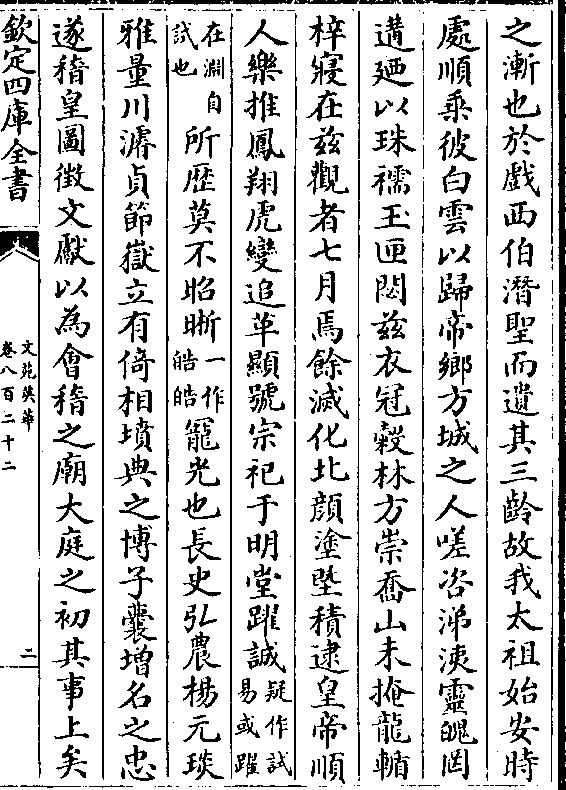 之漸也於戲西伯潛聖而遺其三齡故我太祖始安時
處順乘彼白雲以歸帝鄉方城之人嗟咨涕洟靈魄罔
遘廼以珠襦玉匣閟茲衣冠穀林方崇喬山未掩龍輴
梓寢在茲觀者七月焉餘滅化北顔塗塈積逮皇帝順
人樂推鳳翔虎變追革顯號宗祀于明堂躍誠疑作試易或躍
在淵自試也所歴莫不昭晣一作皓皓寵光也長史弘農楊元琰
雅量川濬貞節嶽立有倚相墳典之博子囊增名之忠
遂稽皇圖徴文獻以為會稽之廟大庭之初其事上矣
欽定四庫全書
文苑英華
卷八百二十二
二